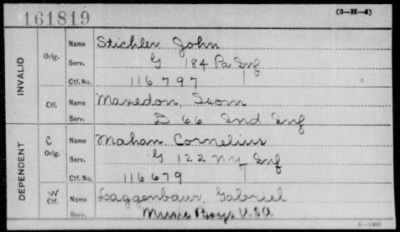 161819
(3-H-4)
INVALID
Orig. Name Stichler John
Serv. G 184 Pa Inf
Ctf. No. 116797
Ctf. Name
Serv. D 66 Ind Inf
DEPENDENT
C Orig. Name Mahan Cornelius
Serv. G 122 NY Inf
Ctf. No. 116679
W Ctf. Name Laggenbaur, Gabriel
Serv. Music Boys U.S.A.